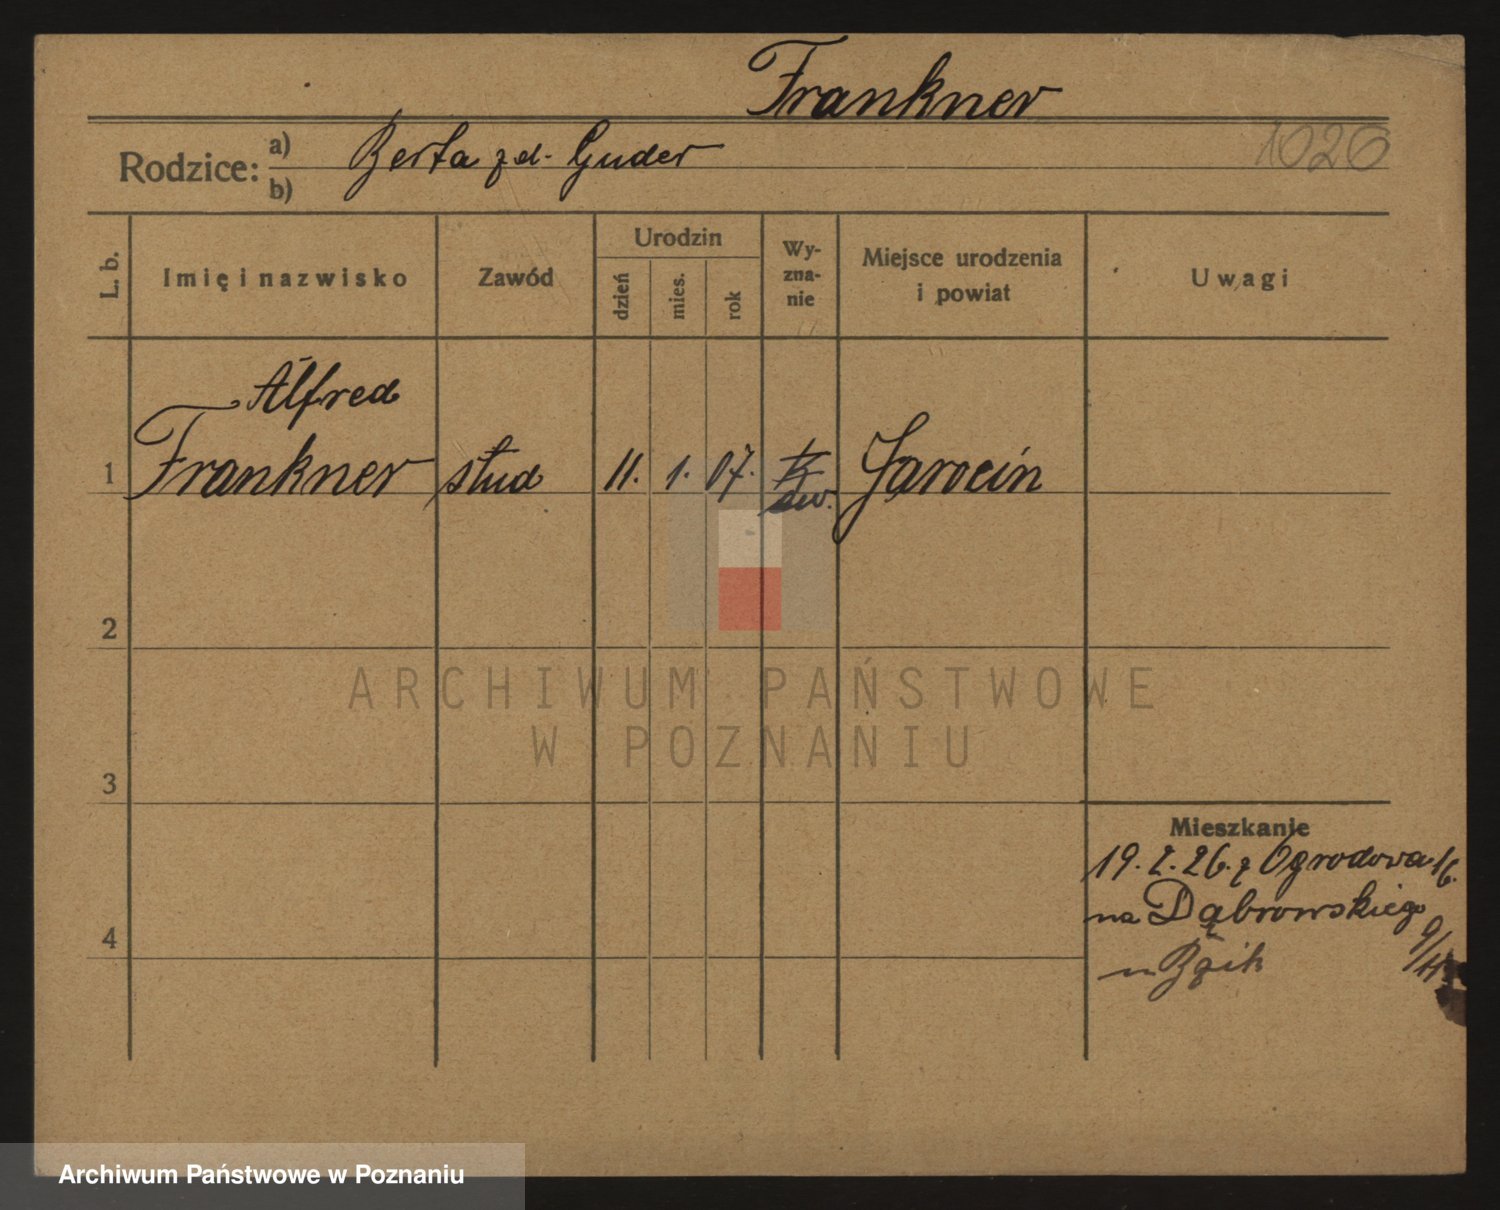 Frankner
1020
Rodzice: a) Berta zd. Guder
b)
L. b.
Imię i nazwisko
Zawód
Urodzin
dzień
mies.
rok
Wy-
zna-
nie
Miejsce urodzenia
i powiat
Uwagi
Alfred
1 Frankner stud 11. 1. 07. ew. Jarocin
2
3
4
Mieszkanie
19. 2. 26. z Ogrodowa 16.
na Dąbrowskiego
u Bzik
ARCHIWUM PAŃSTWOWE
W POZNANIU
Archiwum Państwowe w Poznaniu